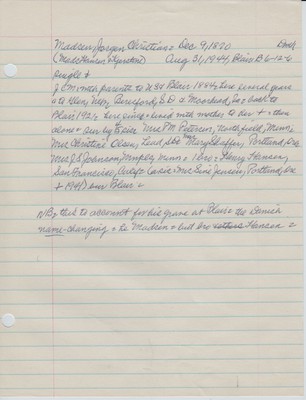 Madsen, Jorgen Christian = Dec 9, 1870 Denk
(Mads Hansen Agnestine) Aug 31, 1944, Blair B 6-12-6
single +
J C M with parents to USA Blair 1884, here several years
to Viborg, Beresford, S D + Moorhead, Ia = back to
Blair 1921, here since = lived with mother to her + = then
alone = sur by 4 sisters Mrs P M Petersen, Northfield, Minn;
Mrs Christine Olsen, Lead, SD = Mrs Mary Shaffer, Portland, Ore
Mrs J S Johnson, Murphy, Minn = 1 bro = Henry Hansen,
San Francisco, Calif = (sister Mrs Line Jensen, Portland, Ore
+ 1941) bur Blair =
NB, this to account for his grave at Blair = the Danish
name-changing = to Madsen = but bro Hansen =